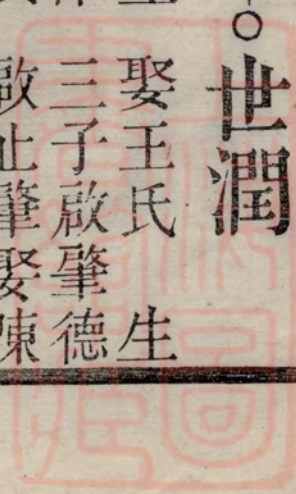 ○世潤
娶王氏 生
三子啟肇德
啟止肇娶陳